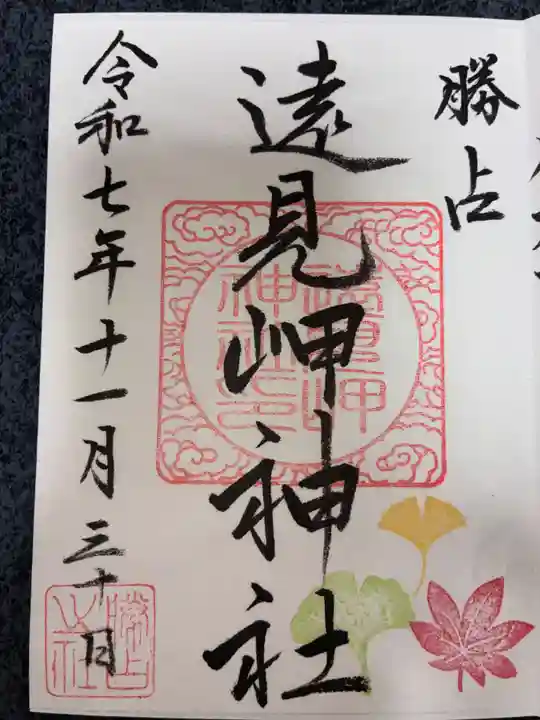 勝占
遠見岬神社
遠見岬
神社之印
令和七年十一月三十日
勝占
之社